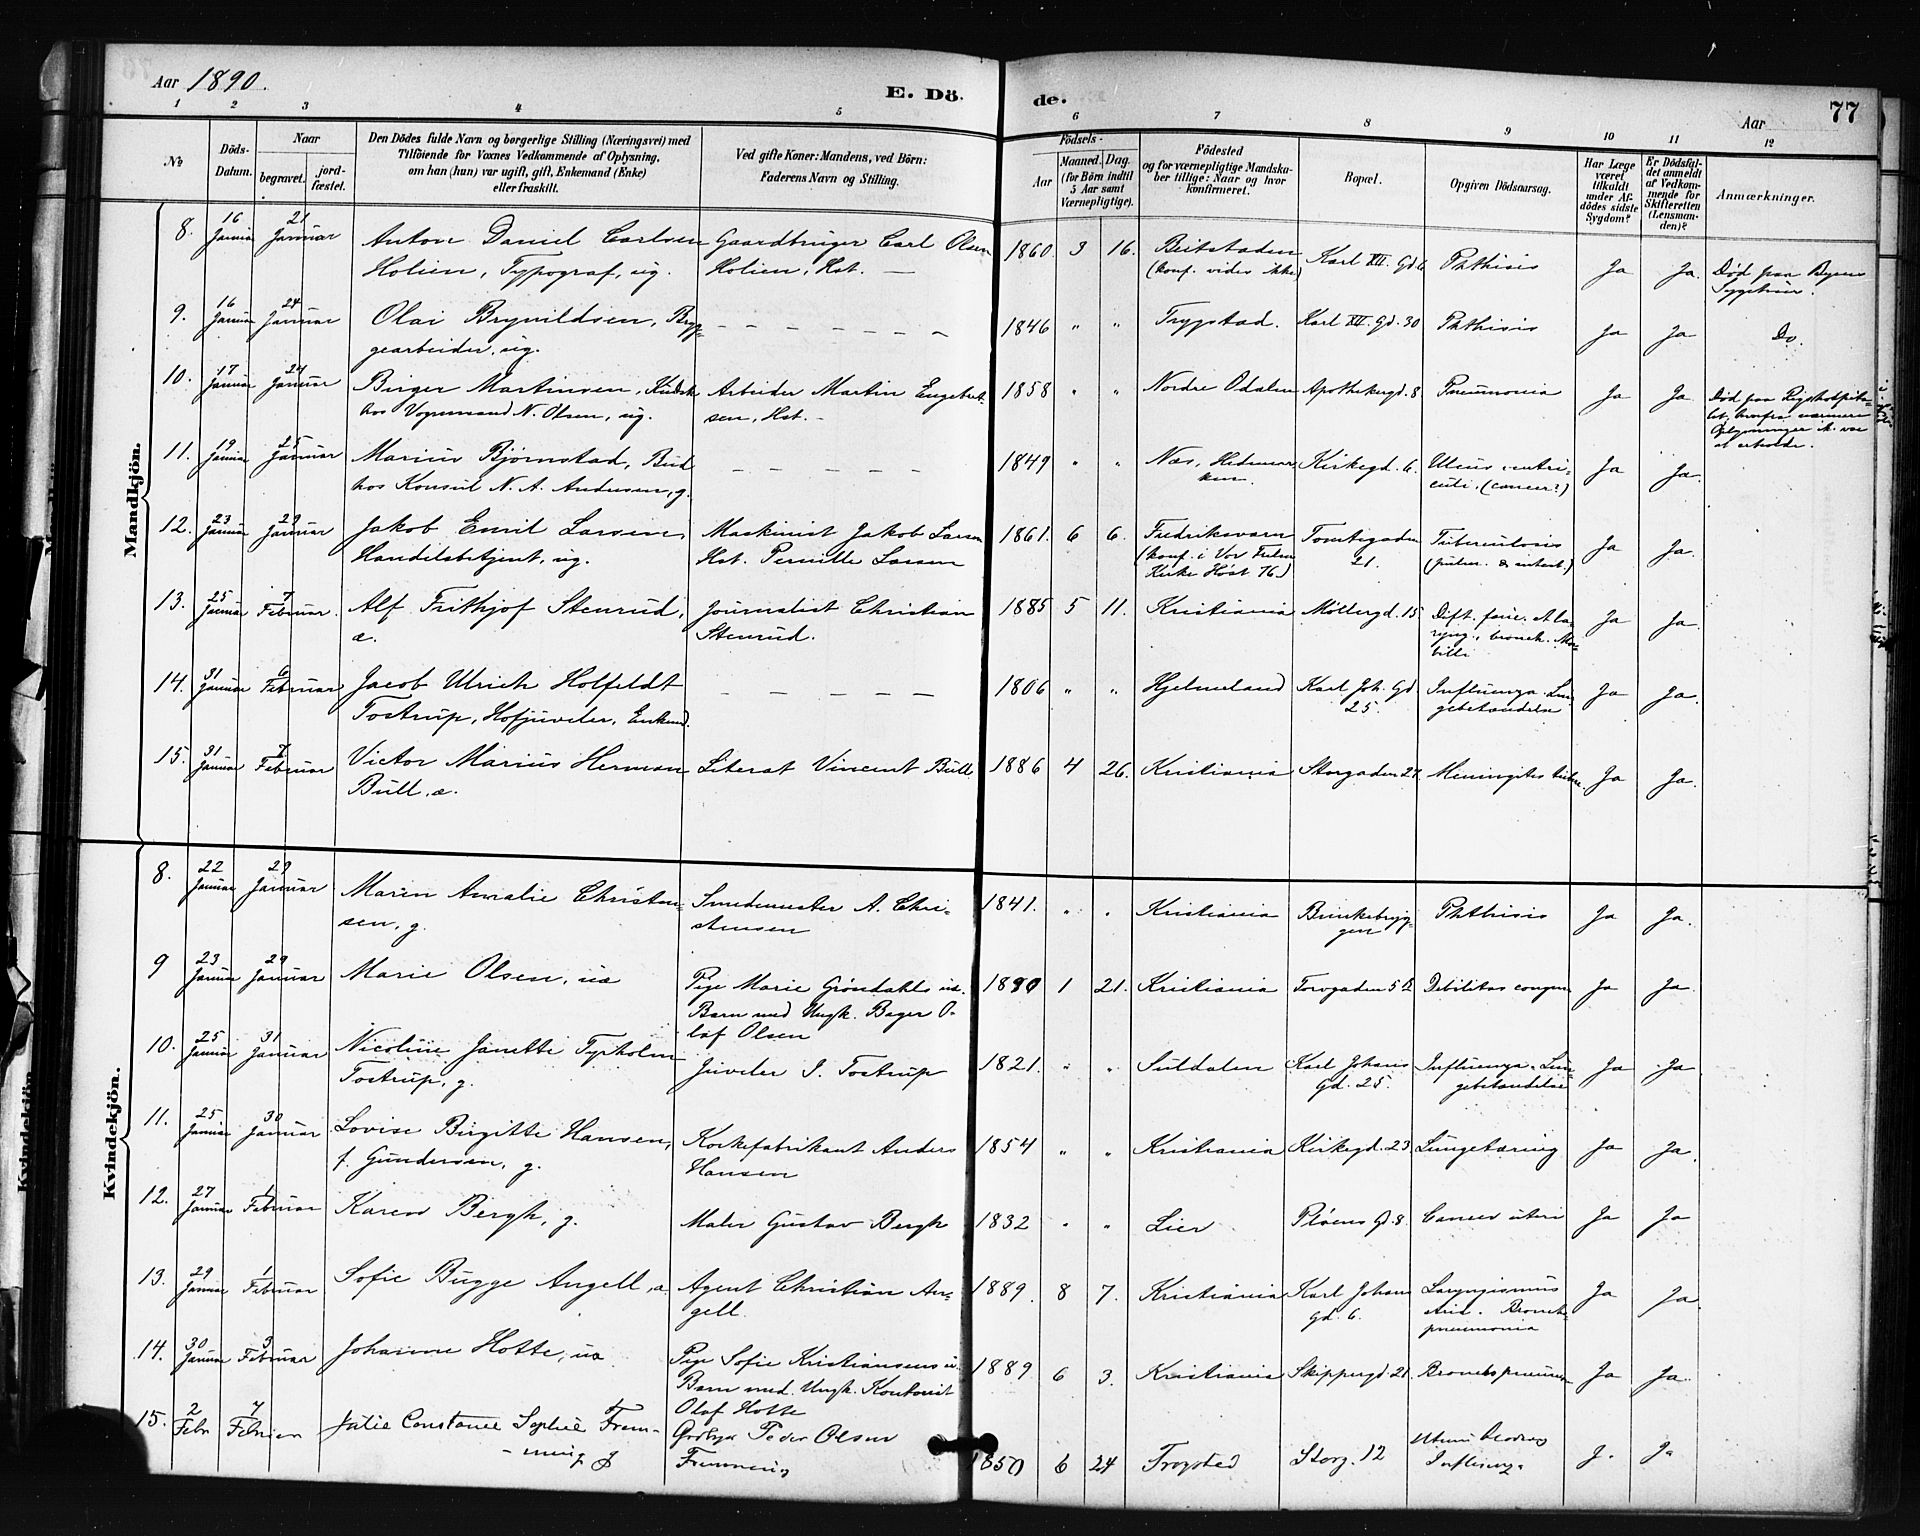 Aar 1890.
E. Dö
de.
Aar
77
1 2 3 4 5 6 7 8 9 10 11 12
No
Döds-
Datum.
Naar
begravet.
jord-
fæstet.
Den Dödes fulde Navn og borgerlige Stilling (Næringsvei) med
Tilföiende for Voxnes Vedkommende af Oplysning,
om han (hun) var ugift, gift, Enkemand (Enke)
eller fraskilt.
Ved gifte Koner: Mandens, ved Börn:
Faderens Navn og Stilling.
Födsels-
Aar
Maaned. Dag.
(for Börn indtil
5 Aar samt
Værnepligtige).
Födested
og for værnepligtige Mandska-
ber tillige: Naar og hvor
konfirmeret.
Bopæl.
Opgiven Dödsaarsag.
Har Læge
været
tilkaldt
under Af-
dödes sidste
Sygdom?
Er Dödsfal-
det anmeldt
af Vedkom-
mende for
Skifteretten
(Lensman-
den)?
Anmærkninger.
Mandkjön.
8. 16 Januar 21 Januar Anton Daniel Carlsen Gaardbruger Carl Olsen 1860. 3 16. Beitstaden Karl XII. Gd 6 Phthisis Ja Ja. Död paa Byens
Holien, Typograf, ug. Holien, Hst. — (konf. vides ikke) Sygehus.
9. 16 Januar 24 Januar Olai Brynildsen, Bryg- 1846 " " Trygstad. Karl XII. Gd. 30 Phthisis Ja Ja Do.
gearbeider, ug.
10. 17 Januar 24 Januar Birger Martinsen, Kudsk Arbeider Martin Engebret- 1858 " " Nordre Odalen Apothekergd. 8 Pneumonia Ja Ja Död paa Rigshospita-
hos Vognmand N. Olsen, ug. sen, Hst. — let, hvorfra nærmere
Oplysninger ik. var
at erholde.
11. 19 Januar 25 Januar Marius Bjørnstad, Bud 1849 " " Næs, Hedemar- Kirkegd. 6. Ulcus ventri- Ja Ja.
hos Konsul N. A. Andresen, g. ken. culi. (cancer?)
12. 23 Januar 29 Januar Jakob Emil Larsen Maskinist Jakob Larsen 1861. 6 6. Fredriksværn Tomtegaden Tuberculosis Ja Ja.
Handelsbetjent, ug. Hst. Pernille Larsen (konf. i Vor Frelsers 21. (pulm. & intest.)
Kirke Høst 76)
13. 25 Januar 7 Februar. Alf Frithjof Stenrud, Journalist Christian 1885 5 11. Kristiania Möllergd. 15 Dift. fauc. et la- Ja Ja.
æ. Stenrud. ryng., bronch. Mor-
billi
14. 31 Januar 6 Februar Jacob Ulrich Holfeldt 1806 " " Hjelmeland Karl Joh. Gd Influenza. Lun- Ja Ja.
Tostrup, Hofjuveler, Enkmd. 25 gebetændelse
15. 31 Januar 7 Februar Victor Marius Herman Literat Vincent Bull 1886 4 26. Kristiania Storgaden 27 Meningites tuber. Ja Ja.
Bull, æ.
Kvindekjön.
8. 22 Januar 29 Januar Maren Amalie Christen- Smedemester A. Chri- 1841. " " Kristiania Brinkebryg- Phthisis Ja Ja.
sen, g. stensen gen
9 23 Januar 29 Januar Marie Olsen, uæ Pige Marie Gröndahls uæ. 1890 1 21. Kristiania Torvgaden 5 b Debilitas congen Ja Ja.
Barn med Ungk. Bager O-
laf Olsen
10. 25 Januar 31 Januar Nicoline Janette Tyrholm Juveler J. Tostrup 1821. " " Suldalen Karl Johans Influenza. Lun- Ja Ja
Tostrup, g. Gd. 25. gebetændelse
11. 25 Januar 30 Januar Lovise Birgitte Hansen, Korkefabrikant Anders 1854 " " Kristiania Kirkegd. 23 Lungetæring Ja Ja.
f. Gundersen, g. Hansen
12. 27 Januar 1 Februar Karen Bergh, g. Maler Gustav Bergh 1832 " " Lier Pløens G. 8. Cancer uteri Ja Ja
13. 29 Januar 1 Februar Sofie Bugge Angell, æ Agent Christian An- 1889. 8 7. Kristiania Karl Johans Laryngismus Ja Ja.
gell. gd. 6. strid. Bronch-
pneumonia
14. 30 Januar 3 Februar Johanne Hotte, uæ Pige Sofie Kristiansens u. 1889 6 3. Kristiania Skippergd. 21 Bronchopneumon Ja Ja.
Barn med Ungk. Kontorist
Olaf Hotte
15. 2 Febr 7 Februar Julie Constance Sophie Frem- Peder Olsen 1850 6 24 Trygsted Storg. 12 Ja Ja
ming g Fremming Influenza